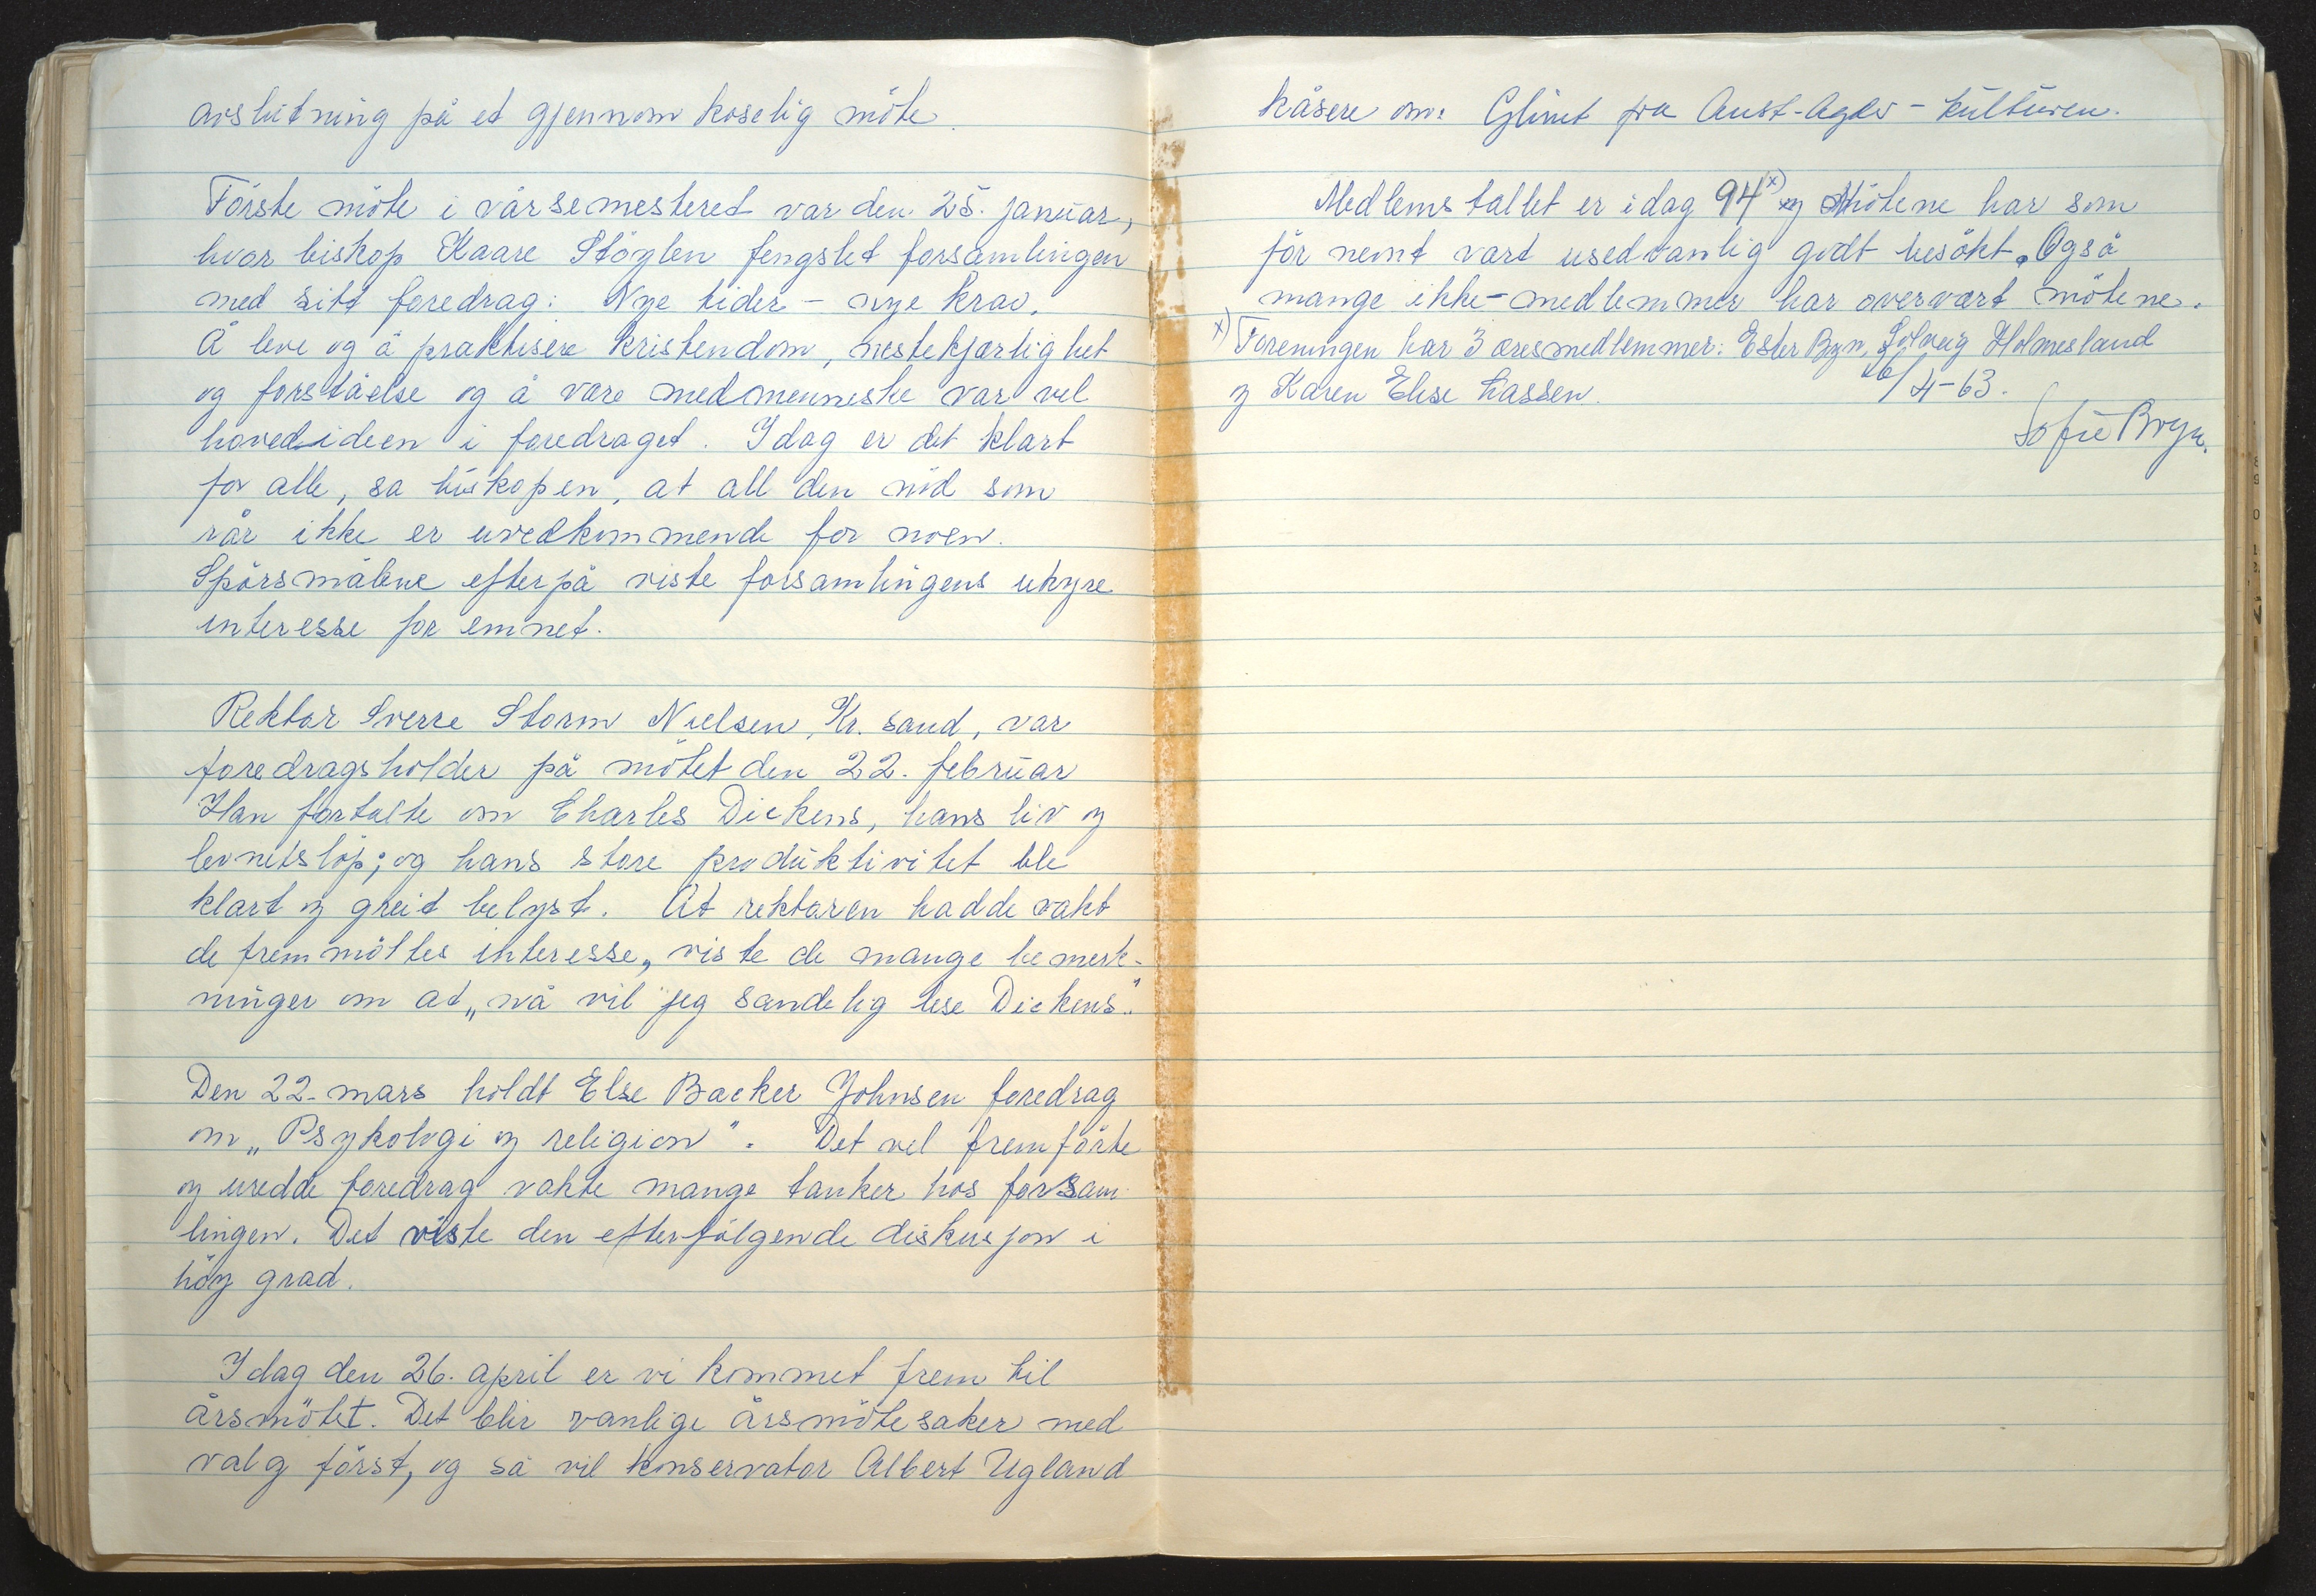 avslutning på et gjennom koselig möte.
Förste möte i vårsemesteret var den 25. januar,
hvor biskop Kaare Stöylen fengslet forsamlingen
med sitt foredrag: Nye tider - nye krav.
Å leve og å praktisere kristendom, nestekjærlighet
og forståelse og å være medmenneske var vel
hovedideen i foredraget. Idag er det klart
for alle, sa biskopen, at all den nöd som
rår ikke er uvedkommende for noen.
Spörsmålene efterpå viste forsamlingens uhyre
interesse for emnet.
Rektor Sverre Storm Nielsen, Kr. sand, var
foredragsholder på mötet den 22. februar
Han fortalte om Charles Dickens, hans liv og
levnetslöp; og hans store produktivitet ble
klart og greit belyst. At rektoren hadde vakt
de fremmöttes interesse, viste de mange bemerk-
ninger om at „nå vil jeg sandelig lese Dickens".
Den 22. mars holdt Else Backer Johnsen foredrag
om „Psykologi og religion". Det vel fremförte
og uredde foredrag vakte mange tanker hos forsam-
lingen. Det viste den efterfölgende diskusjon i
höy grad.
Idag den 26. april er vi kommet frem til
årsmötet. Det blir vanlige årsmötesaker med
valg först, og så vil konservator Albert Ugland
kåsere om: Glimt fra Aust-Agder-kulturen.
Medlemstallet er idag 94 x) Mötene har som
för nevnt vært usedvanlig godt besökt. Også
mange ikke-medlemmer har overvært mötene.
x) Foreningen har 3 æresmedlemmer: Ester Bryn, Solveig Holmesland
og Karen Elise Lassen. 26/4-63.
Sofie Bryn.